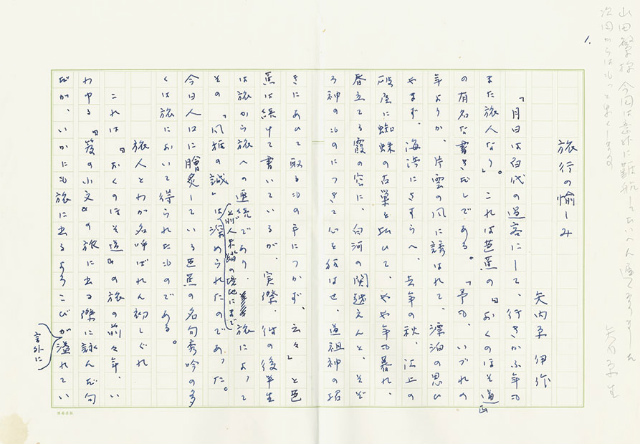 1.
旅行の愉しみ
矢内原伊作
「月日は百代の過客にして、行きかふ年も
また旅人なり。」これは芭蕉の『おくのほそ道』
の有名な書き出しである。「予も、いづれの
年よりか、片雲の風に誘はれて、漂泊の思ひ
やまず、海浜にさすらへ、去年の秋、江上の
破屋に蜘蛛の古巣を払ひて、やや年も暮れ、
春立てる霞の空に、白河の関越えんと、そぞ
ろ神のものにつきて心を狂はせ、道祖神の招
きにあひて取るもの手につかず、云々」と芭
蕉は続けて書いているが、実際、彼の後半生
は旅から旅への連続であり、旅によって
その「風雅の誠」は深められたのであった。
今日人口に膾炙している芭蕉の名句秀吟の多
くは旅において得られたものである。
旅人とわが名呼ばれん初しぐれ
これは『おくのほそ道』の旅の前々年、い
わゆる『笈の小文』の旅に出る際に詠んだ句
だが、いかにも旅に出るよろこびが溢れてい
言外に